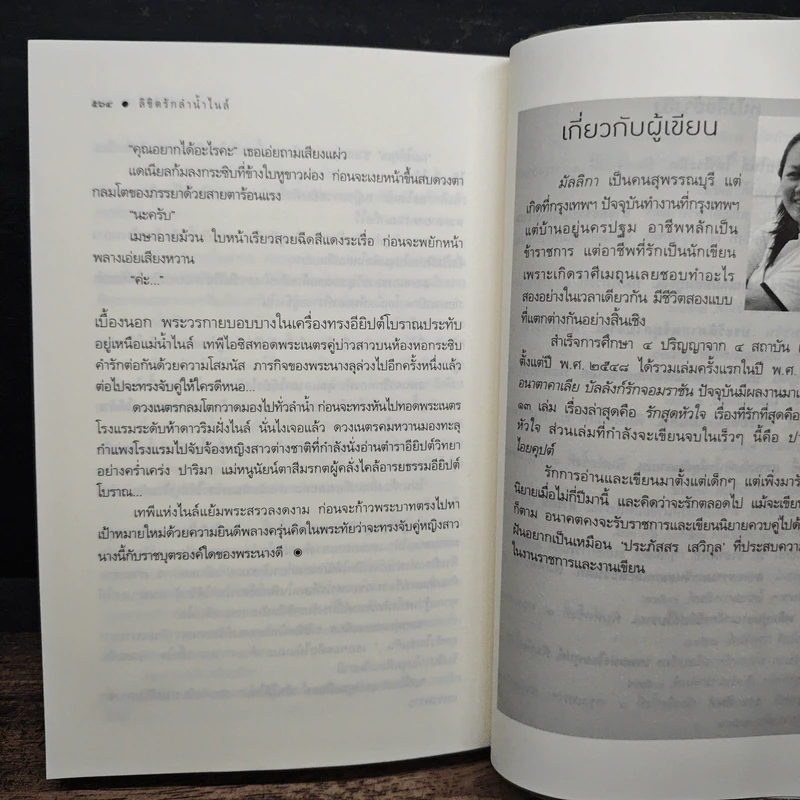 ๕๖๔ ● ลิขิตรักลำน้ำไนล์
“คุณอยากได้อะไรคะ” เธอเอ่ยถามเสียงแผ่ว
แดเนียลก้มลงกระซิบที่ข้างใบหูขาวผ่อง ก่อนจะเงยหน้าขึ้นสบดวงตา
กลมโตของภรรยาด้วยสายตาร้อนแรง
“นะครับ”
เมษาอายม้วน ใบหน้าเรียวสวยฉีดสีแดงระเรื่อ ก่อนจะพยักหน้า
พลางเอ่ยเสียงหวาน
“ค่ะ...”
เบื้องนอก พระวรกายบอบบางในเครื่องทรงอียิปต์โบราณประทับ
อยู่เหนือแม่น้ำไนล์ เทพีไอซิสทอดพระเนตรคู่บ่าวสาวบนห้องหอกระซิบ
คำรักต่อกันด้วยความโสมนัส ภารกิจของพระนางลุล่วงไปอีกครั้งหนึ่งแล้ว
ต่อไปจะทรงจับคู่ให้ใครดีหนอ...
ดวงเนตรกลมโตกวาดมองไปทั่วลำน้ำ ก่อนจะทรงหันไปทอดพระเนตร
โรงแรมระดับห้าดาวริมฝั่งไนล์ นั่นไงเจอแล้ว ดวงเนตรคมหวานมองทะลุ
กำแพงโรงแรมไปจับจ้องหญิงสาวต่างชาติที่กำลังนั่งอ่านตำราอียิปต์วิทยา
อย่างคร่ำเคร่ง ปาริมา แม่หนูนัยน์ตาสีมรกตผู้คลั่งไคล้อารยธรรมอียิปต์
โบราณ...
เทพีแห่งไนล์แย้มพระสรวลงดงาม ก่อนจะก้าวพระบาทตรงไปหา
เป้าหมายใหม่ด้วยความยินดีพลางครุ่นคิดในพระทัยว่าจะทรงจับคู่หญิงสาว
นางนี้กับราชบุตรองค์ใดของพระนางดี ◉
เกี่ยวกับผู้เขียน
มัลลิกา เป็นคนสุพรรณบุรี แต่
เกิดที่กรุงเทพฯ ปัจจุบันทำงานที่กรุงเทพฯ
แต่บ้านอยู่นครปฐม อาชีพหลักเป็น
ข้าราชการ แต่อาชีพที่รักเป็นนักเขียน
เพราะเกิดราศีเมถุนเลยชอบทำอะไร
สองอย่างในเวลาเดียวกัน มีชีวิตสองแบบ
ที่แตกต่างกันอย่างสิ้นเชิง
สำเร็จการศึกษา ๔ ปริญญาจาก ๔ สถาบัน
ตั้งแต่ปี พ.ศ. ๒๕๔๘ ได้รวมเล่มครั้งแรกในปี พ.ศ.
อนาตาคาเลีย บัลลังก์รักจอมราชัน ปัจจุบันมีผลงานมา
๑๓ เล่ม เรื่องล่าสุดคือ รักสุดหัวใจ เรื่องที่รักที่สุดคือ
หัวใจ ส่วนเล่มที่กำลังจะเขียนจบในเร็วๆ นี้คือ
ไอยคุปต์
รักการอ่านและเขียนมาตั้งแต่เด็กๆ แต่เพิ่งมา
นิยายเมื่อไม่กี่ปีมานี้ และคิดว่าจะรักตลอดไป แม้จะเขียน
ก็ตาม อนาคตคงจะรับราชการและเขียนนิยายควบคู่ไป
ฝันอยากเป็นเหมือน ‘ประภัสสร เสวิกุล’ ที่ประสบความ
ในงานราชการและงานเขียน